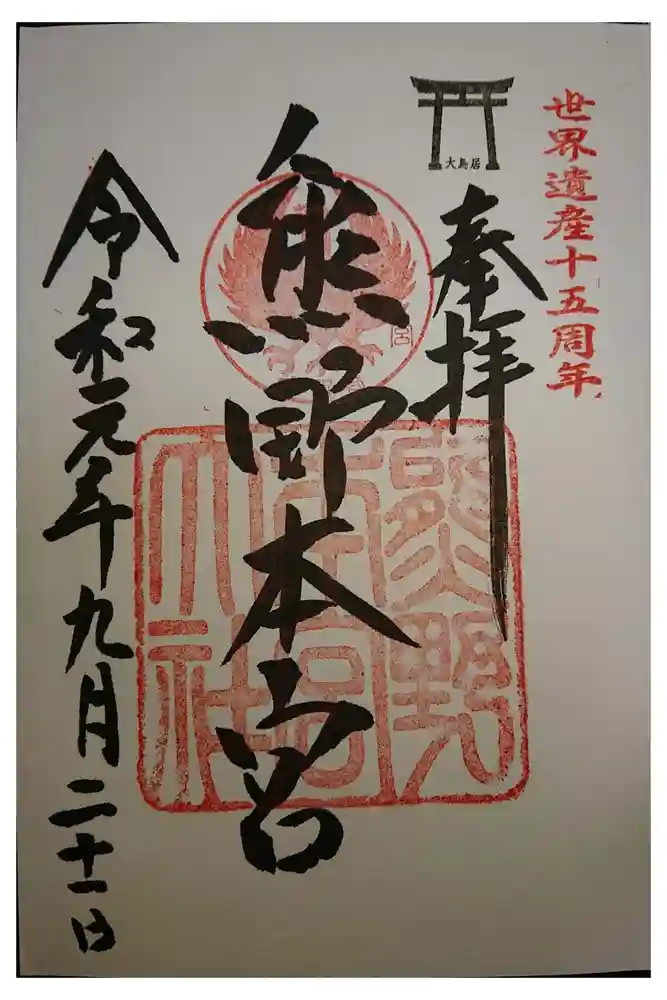 世界遺産十五周年
大鳥居
奉拝
熊野本宮
熊野本宮大社
令和元年九月二十一日